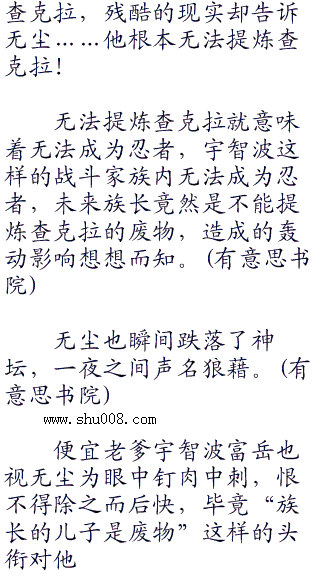 查克拉，残酷的现实却告诉
无尘……他根本无法提炼查
克拉！
无法提炼查克拉就意味
着无法成为忍者，宇智波这
样的战斗家族内无法成为忍
者，未来族长竟然是不能提
炼查克拉的废物，造成的轰
动影响想想而知。（有意思书
院）
无尘也瞬间跌落了神
坛，一夜之间声名狼藉。（有
意思书院）
www.shu008.com
便宜老爹宇智波富岳也
视无尘为眼中钉肉中刺，恨
不得除之而后快，毕竟“族
长的儿子是废物”这样的头
衔对他